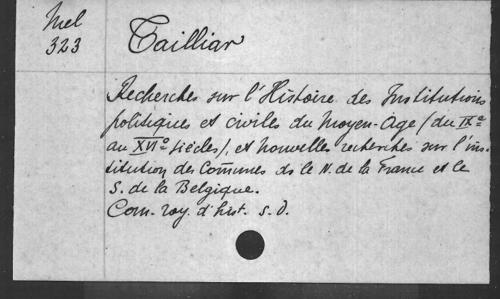 Mel
323
Tailliar
Recherches sur l'Histoire des Institutions
politiques et civiles du Moyen-Age (du IXe
au XVIe siècles), et nouvelles recherches sur l'ins-
titution des Communes ds le N. de la France et le
S. de la Belgique.
Com. roy. d'hist. s. d.